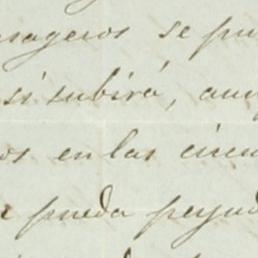 sageros se pu
si subirá, aun
os en las circu
e pueda perjud